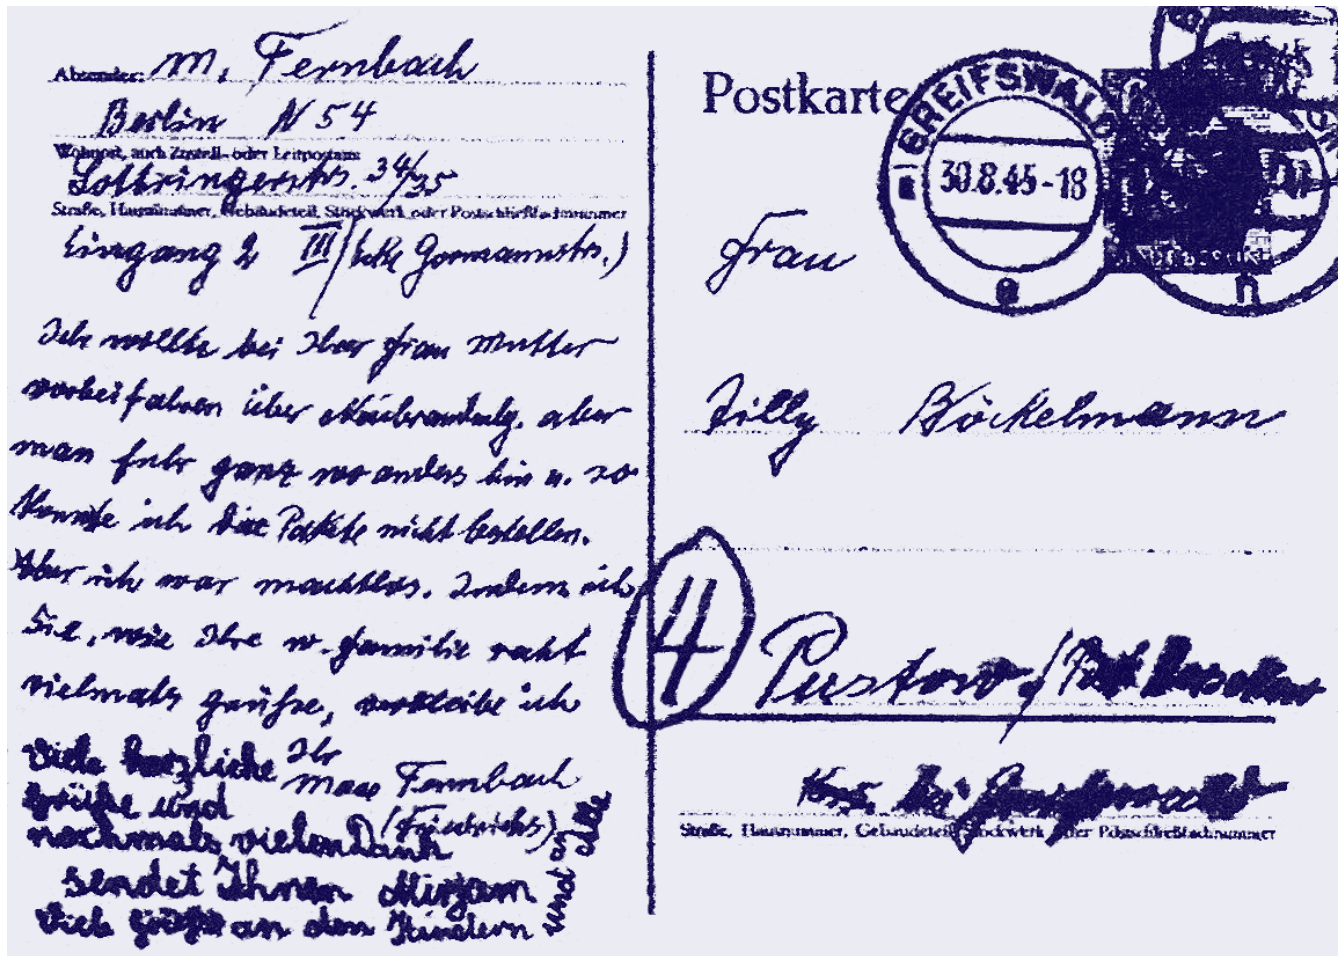 Absender: M. Fernbach
Berlin N 54
Wohnort, auch Zustell- oder Leitpostamt
Lothringerstrs. 34/35
Straße, Hausnummer, Gebäudeteil, Stockwerk oder Postschließfachnummer
Eingang 2 III / Ecke Gormannstrs.)
Ich wollte bei Ihrer Frau Mutter
vorbeifahren über Neubrandenbg. aber
man fuhr ganz wo anders hin u. so
konnte ich die Pakete nicht bestellen.
Aber ich war machtlos. Indem ich
Sie, wie Ihre w. Familie recht
vielmals grüße, verbleibe ich
Ihr
Max Fernbach
(Friedrichs)
Viele herzliche
Grüße und
nochmals vielen Dank
sendet Ihnen Mirjam
Viele Grüße an den Kindern
und an alle
Postkarte
GREIFSWALD
30.8.45-18
e
n
Frau
Tilly Böckelmann
4
Pustow / Post
Krs.
Straße, Hausnummer, Gebäudeteil, Stockwerk oder Postschließfachnummer